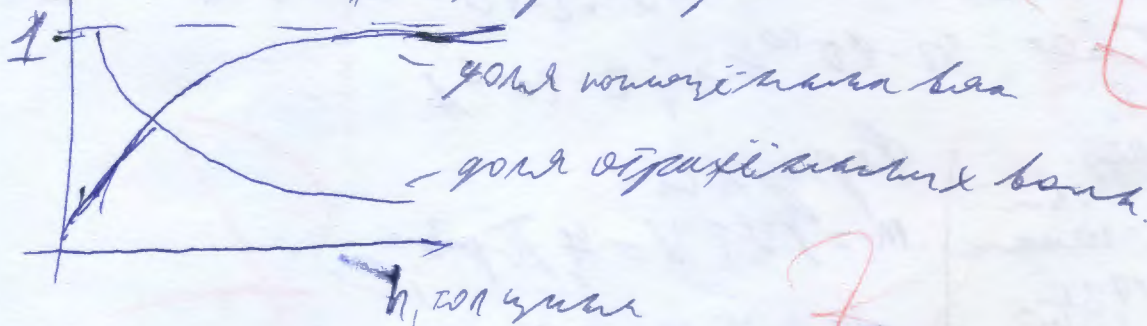 1
– доля поглощённых волн
– доля отражённых волн.
h, толщина